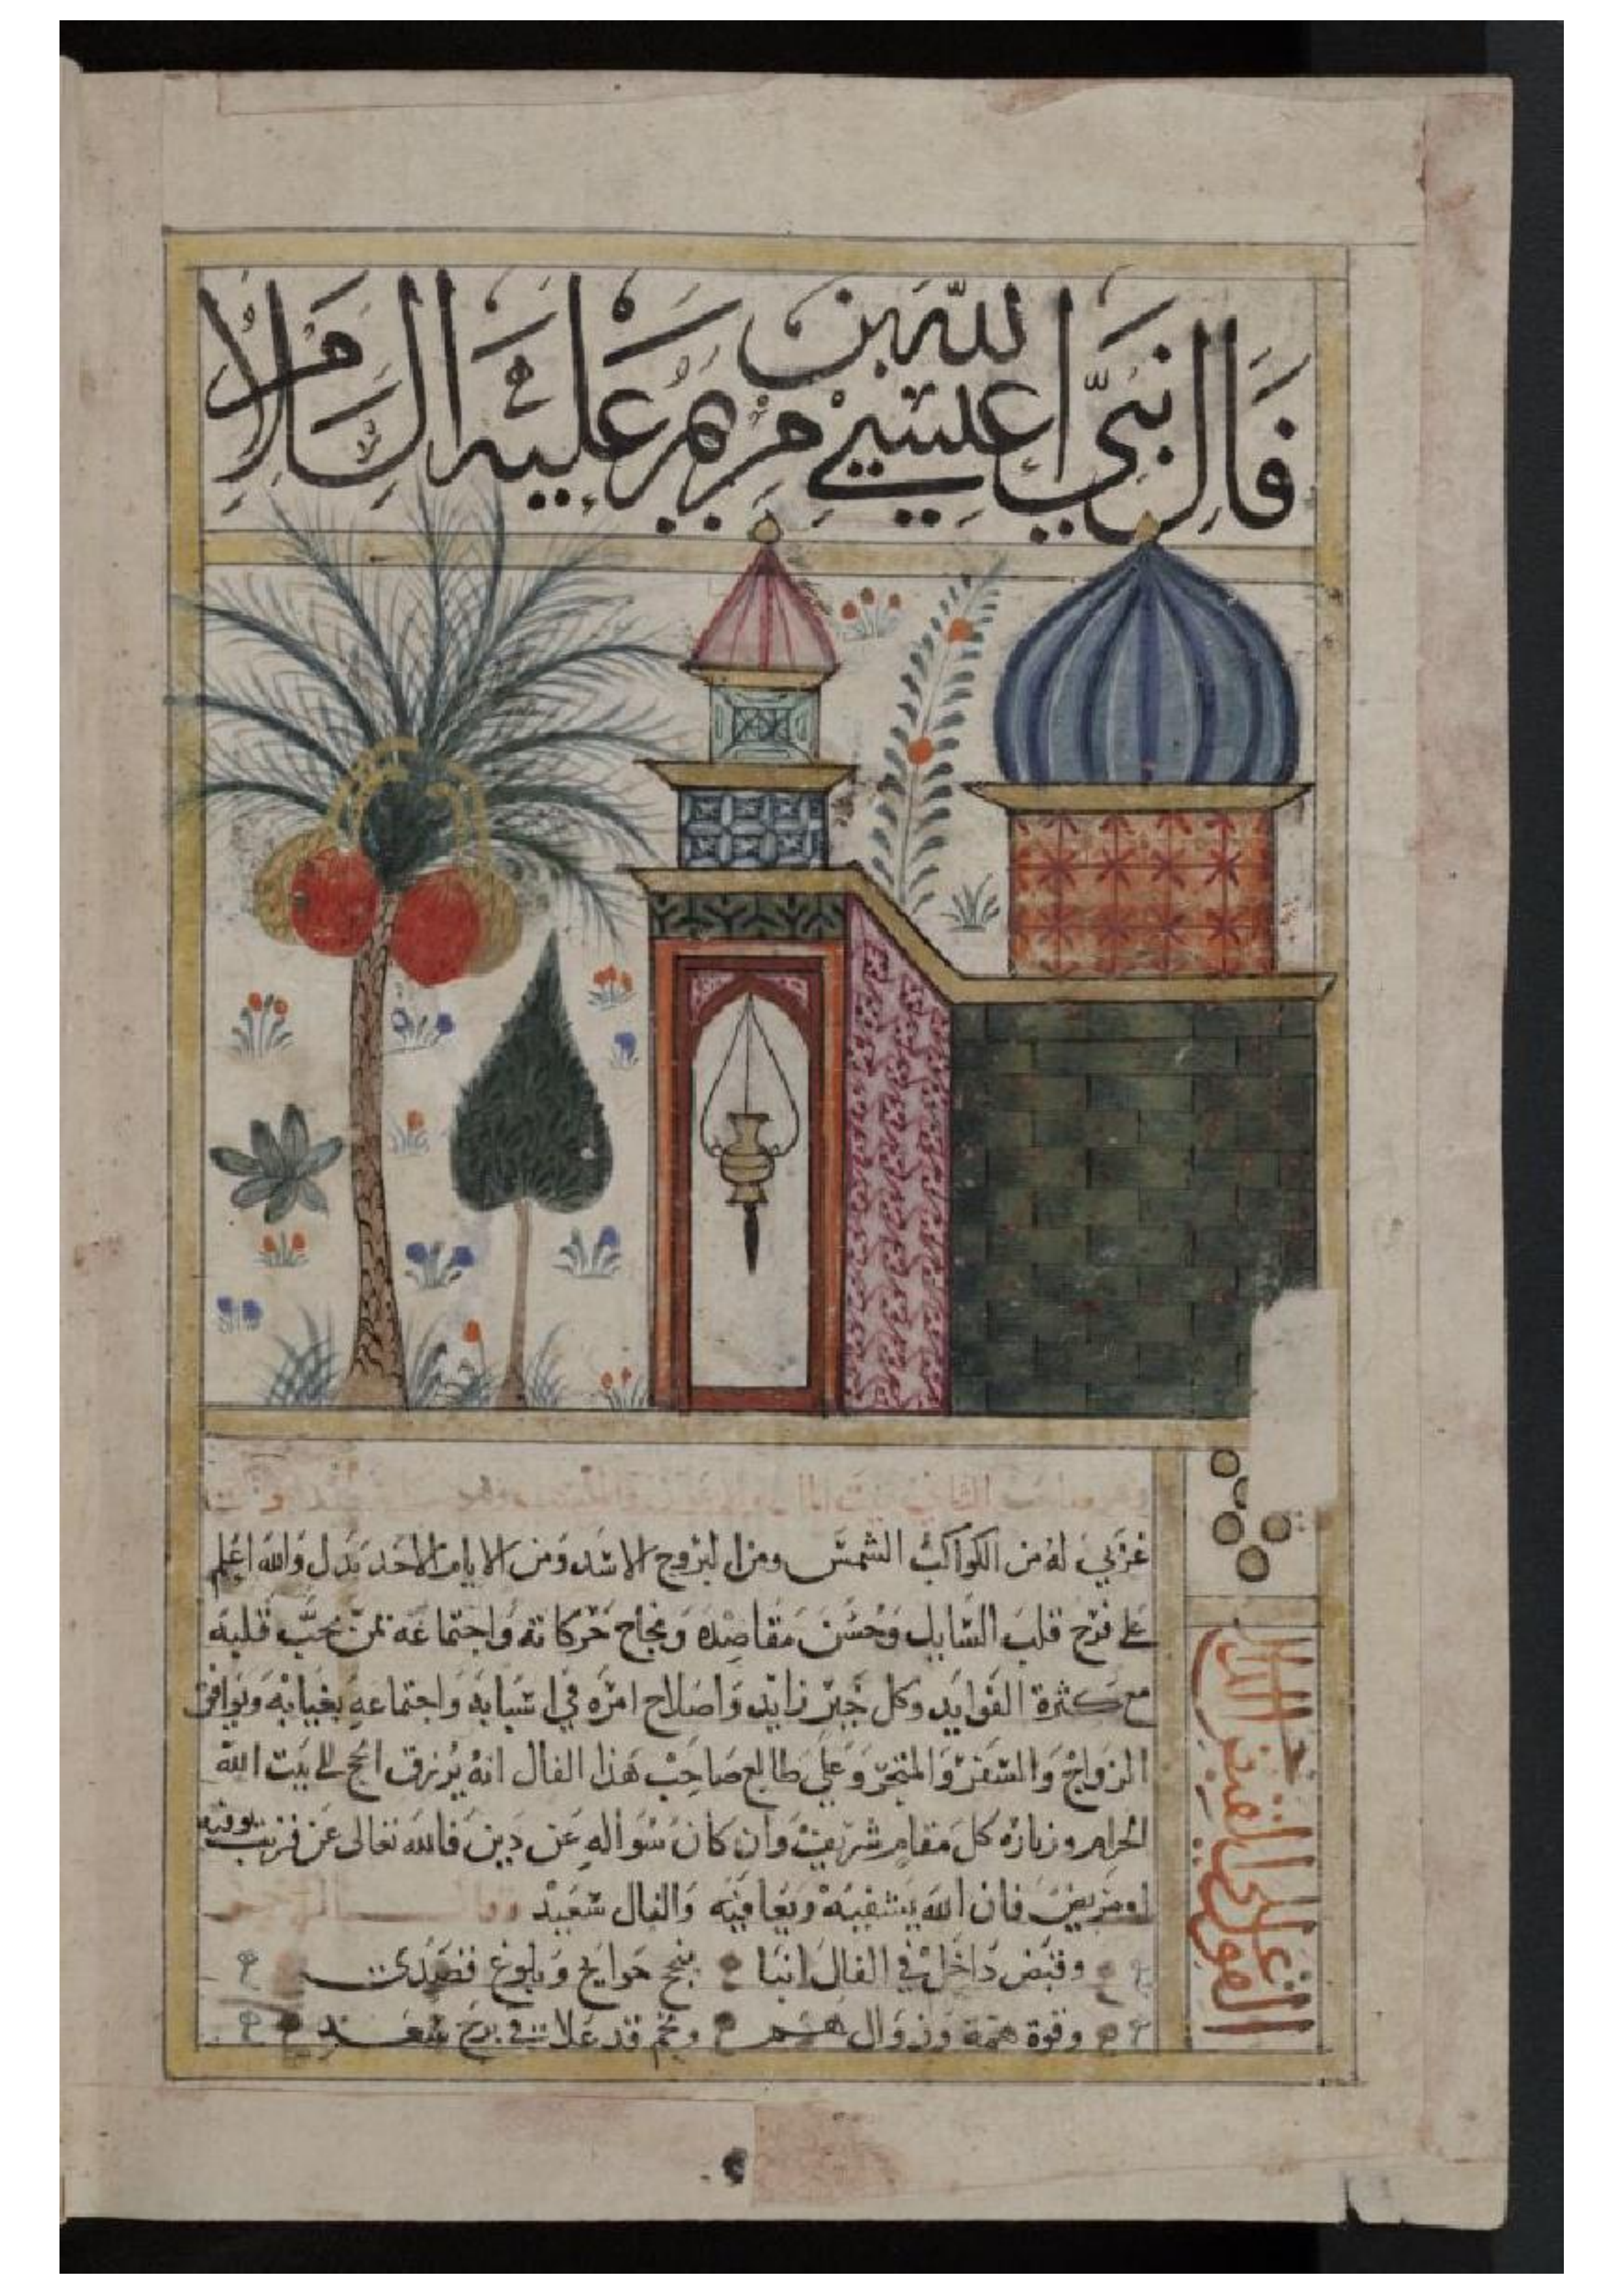 فال نبي الله عيسى بن مريم عليه السلام
الثاني بيت المال
غربي له من الكواكب الشمس ومن البروج الاسد ومن الايام الاحد يدل والله اعلم
على فرح قلب السايل وحسن مقاصده ونجاح حركاته واجتماعه بمن يحب قلبه
مع كثرة الفوايد وكل خير زايد واصلاح امره في اسبابه واجتماعه بغيابه ويوافق
الزواج والسفر والمتجر وعلى طالع صاحب هذا الفال انه يرزق الحج الى بيت الله
الحرام وزيارة كل مقام شريف وان كان سواله عن دين فالله تعالى عن قريب يوفيه
او مريض فان الله يشفيه ويعافيه والفال سعيد
وقبض داخل في الفال انبا بنجح حوايج وبلوغ قصدي
وقوة همة وزوال هم ونجم قد علا في برج سعد